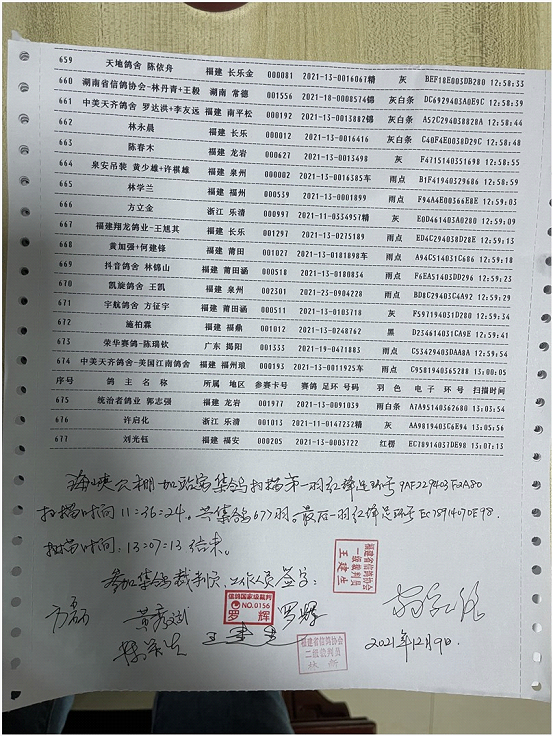 659 天地鸽舍 陈依舟 福建 长乐金 000081 2021-13-0016067精 灰 BEF18E003DB280 12:58:33
660 湖南省信鸽协会-林丹青+王毅 湖南 常德 001556 2021-18-0008574锦 灰白条 DC6929403A0E9C 12:58:39
661 中美天齐鸽舍 罗达洪+李友远 福建 南平松 000192 2021-13-0013882锦 灰白条 A52C294038828A 12:58:44
662 林永晨 福建 长乐 000012 2021-13-0016416 灰白条 C40F4E0038D29C 12:58:48
663 陈春木 福建 龙岩 000627 2021-13-0013498 灰 F4715140351698 12:58:55
664 泉安吊装 黄少雄+许棋雄 福建 泉州 000002 2021-13-0016385车 雨点 B1F41940329686 12:58:59
665 林学兰 福建 福州 000539 2021-13-0001899 雨点 F94A4E00366E8E 12:59:03
666 方立金 浙江 乐清 000997 2021-11-0334957精 灰 E0D461403A0280 12:59:09
667 福建翔龙鸽业-王旭其 福建 长乐 001297 2021-13-0275189 雨点 ED4C294038D28E 12:59:13
668 黄加强+何建锋 福建 莆田 001027 2021-13-0181898车 雨点 A94C514031C686 12:59:18
669 抖音鸽舍 林锦山 福建 莆田涵 000518 2021-13-0180834 雨点 F6EA51403DD296 12:59:23
670 凯旋鸽舍 王凯 福建 泉州 002301 2021-23-0904228 雨点 BD8C29403C4A92 12:59:29
671 宇航鸽舍 方征宇 福建 莆田涵 000511 2021-13-0103718 灰 F597194031D280 12:59:34
672 施柏霖 福建 福鼎 001012 2021-13-0248762 黑 D234614031CA9E 12:59:41
673 荣华赛鸽-陈瑞钦 广东 揭阳 001333 2021-19-0471883 雨点 C53429403DAA8A 12:59:54
674 中美天齐鸽舍-美国江南鸽舍 福建 福州琅 000193 2021-13-0011925车 雨点 C9581940365288 13:00:05
序号 鸽 主 名 称 所属 地区 参赛卡号 赛鸽 足环 号码 羽 色 电 子 环 号 扫描时间
675 统治者鸽业 郭志强 福建 龙岩 001977 2021-13-0091039 雨白条 A7A95140362680 13:03:54
676 许启化 浙江 乐清 001013 2021-11-0147232精 灰 AA9819403C6E94 13:05:56
677 刘光钰 福建 福安 000205 2021-13-0003722 红楞 EC78914037DE98 13:07:13
海峡公棚加站赛集鸽扫描第一羽红绛足环号9AF229403F2A80
扫描时间11:36:24。共集鸽677羽。最后一羽红绛足环号EC7891407DE98.
扫描时间:13:07:13结束。
参加集鸽裁判员、工作人员签字:
福建省信鸽协会
一级裁判员
王建生
方磊 黄彦斌
信鸽国家级裁判
NO.0156
罗辉
罗辉
王建生
福建省信鸽协会
二级裁判员
2021年12月9日.